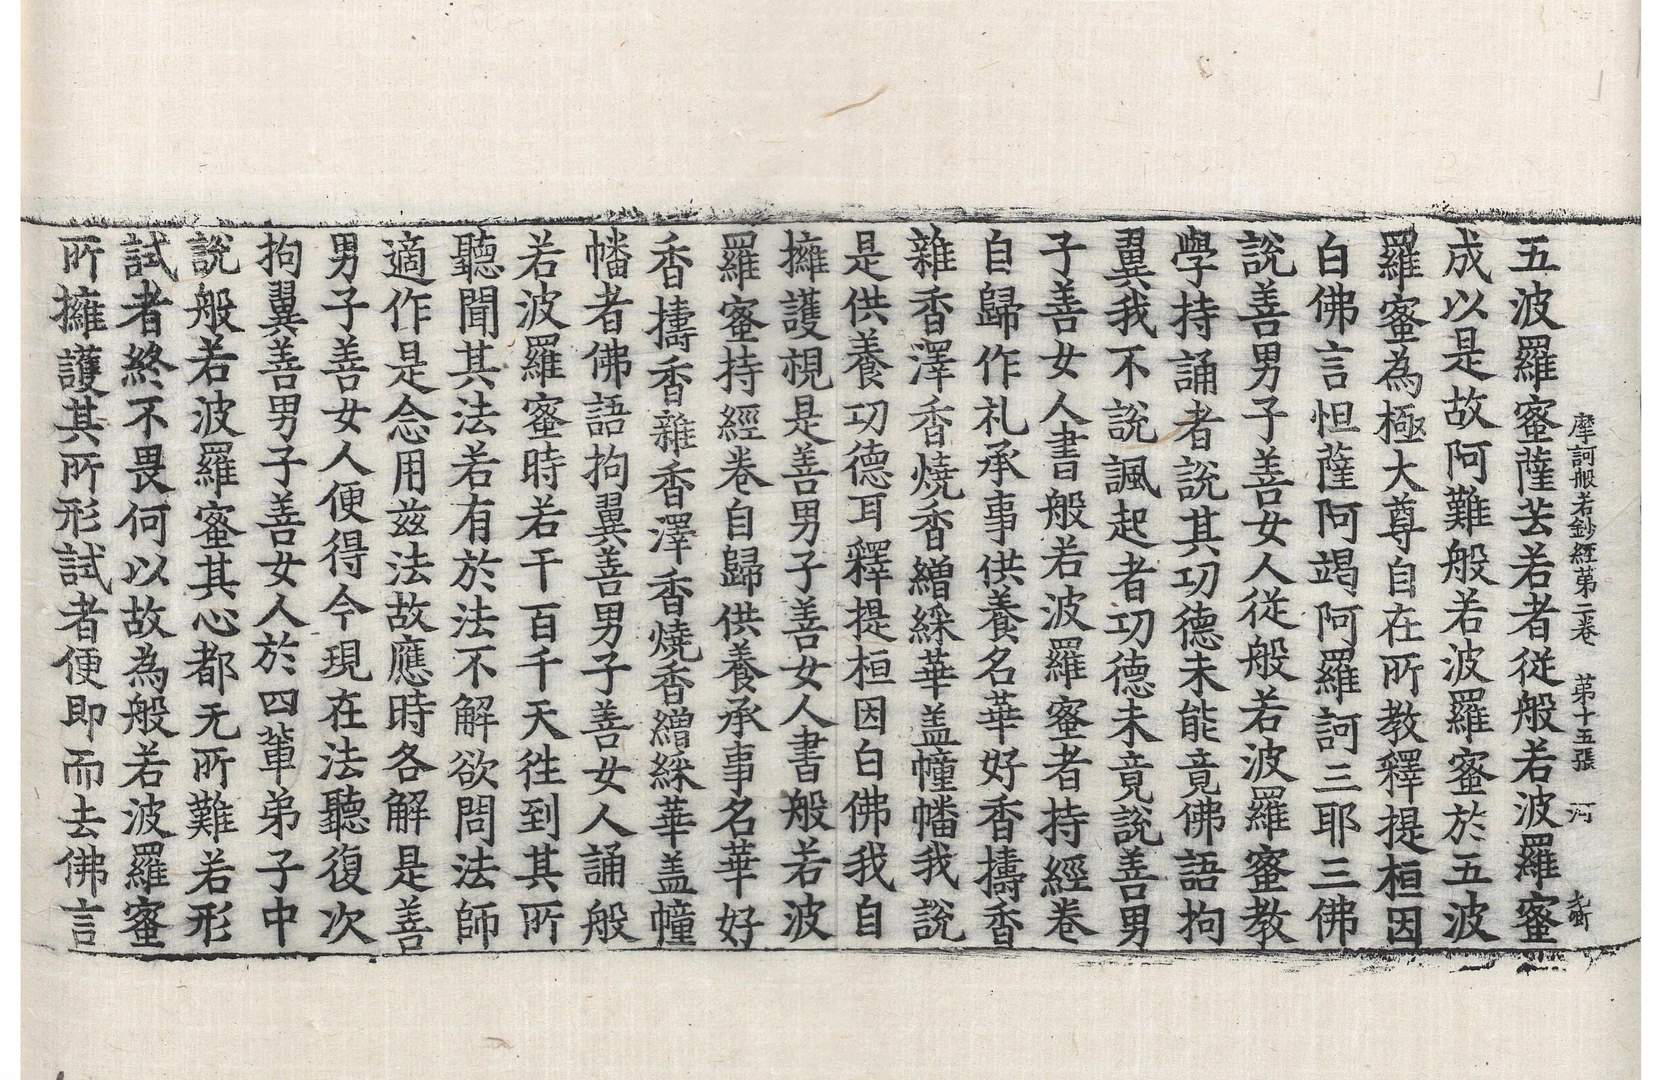 摩訶般若鈔經第二卷　第十五張　河
五波羅蜜薩芸若者從般若波羅蜜
成以是故阿難般若波羅蜜於五波
羅蜜為極大尊自在所教釋提桓因
白佛言怛薩阿竭阿羅訶三耶三佛
說善男子善女人從般若波羅蜜教
學持誦者說其功德未能竟佛語拘
翼我不說諷起者功德未竟說善男
子善女人書般若波羅蜜者持經卷
自歸作礼承事供養名華好香擣香
雜香澤香燒香繒綵華盖幢幡我說
是供養功德耳釋提桓因白佛我自
擁護視是善男子善女人書般若波
羅蜜持經卷自歸供養承事名華好
香擣香雜香澤香燒香繒綵華盖幢
幡者佛語拘翼善男子善女人誦般
若波羅蜜時若干百千天徃到其所
聽聞其法若有於法不解欲問法師
適作是念用兹法故應時各解是善
男子善女人便得今現在法聽復次
拘翼善男子善女人於四輩弟子中
說般若波羅蜜其心都无所難若形
試者終不畏何以故為般若波羅蜜
所擁護其所形試者便即而去佛言